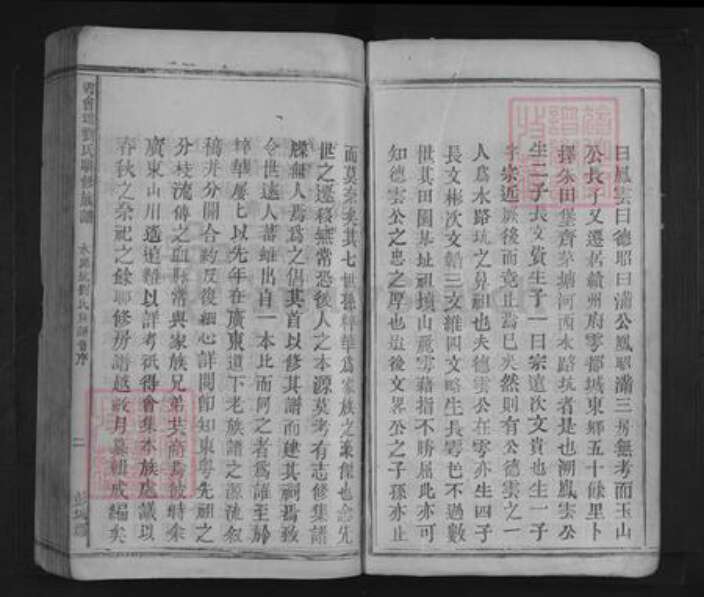 曰鳳雲曰德昭曰滿公鳳昭滿三房無考而玉山
公長子又遷居贛州府雩都城東鄉五十餘里卜
擇朱田堡齊茅塘河西水路坑者是也溯鳳雲公
生二子長文貨生子一曰宗遠次文貴也生一子
字宗近厥後而竟止焉已矣然則有公德雲之一
人為水路坑之鼻祖也夫德雲公在雩亦生四子
長文彬次文誥三文維四文略生長雩邑不過數
世其田園基址祖墳山嶺雩藉指不勝屈此亦可
知德雲公之忠之厚也迨後文略公之子孫亦止
而莫奈矣其七世孫粹華為家族之豪傑也念先
世之遷移無常恐後人之本源莫考有志修集譜
牒無人焉為之倡其首以修其譜而建其祠焉致
令世遠人蕃雖出自一本比而同之者為誰至於
粹華屢上以先年在廣東道下老族譜之源流敘
稿并分開合約反復細心詳閱即知東粵先祖之
分枝流傳之血脈常與家族兄弟共商為彼時余
廣東山川遙遠難以詳考祇得會集本族處議以
春秋之祭祀之餘聯修房譜越數月纂輯成編矣
雩會瑞劉氏聯修族譜
水路坑劉氏族譜舊序
二